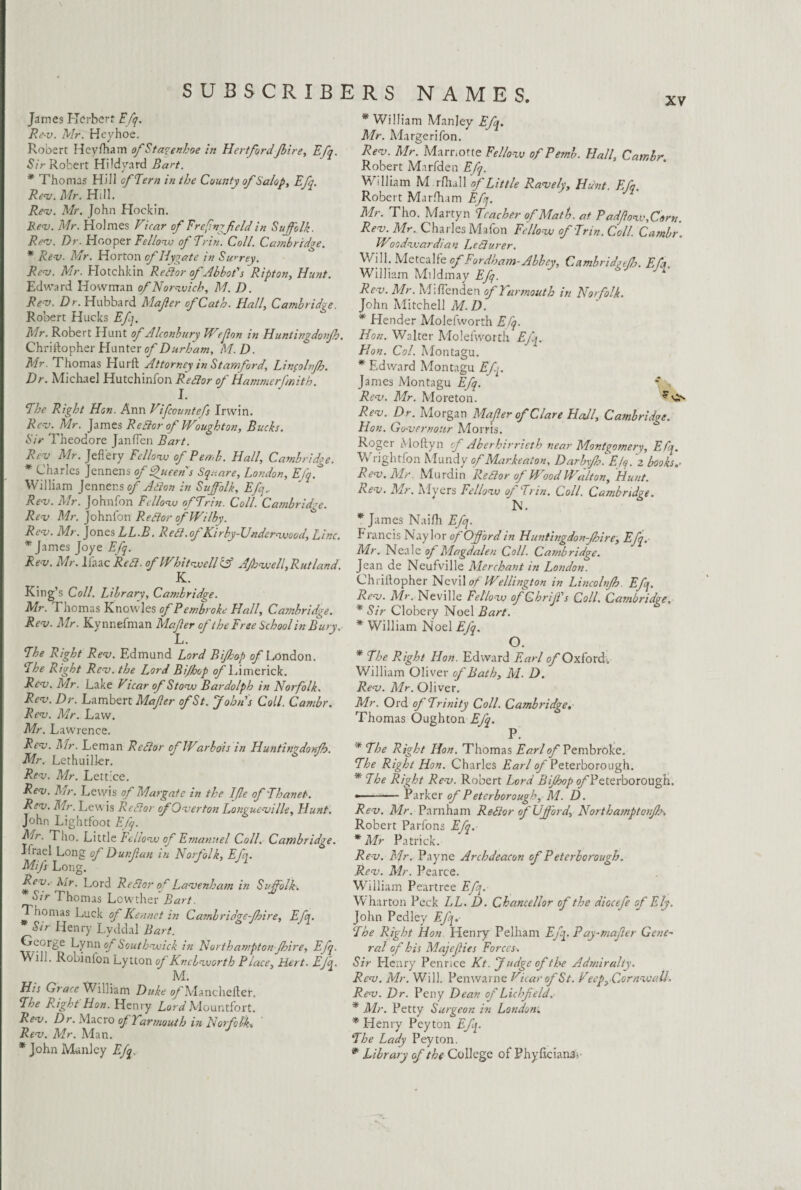 SUBSCRIBERS NAMES.
xv
James Herbert Eſq.
Rev. Mr. Heyhoe.
Robert Heyſham of Stagenhoe in Hertfordſhire, Eſq.
Sir Robert Hildyard Bart.
* Thomas Hill of Tern in the County of Salop, Eſq.
Rev. Mr. Hill.
Rev. Mr. John Hockin.
Rev. Mr. Holmes Vicar of Freſingfield in Suffolk.
Rev. Dr. Hooper Fellow of Trin. Coll. Cambridge.
* Rev. Mr. Horton of Hygate in Surrey.
Rev. Mr. Hotchkin Rector of Abbot's Ripton, Hunt.
Edward Howman of Norwich, M. D.
Rev. Dr. Hubbard Maſter of Cath. Hall, Cambridge.
Robert Hucks Eſq.
Mr. Robert Hunt of Alconbury Weſton in Huntingdonſh.
Chriſtopher Hunter of Durham, M. D.
Mr. Thomas Hurſt Attorney in Stamford, Lincolnſh.
Dr. Michael Hutchinſon Rector of Hammerſmith.
I.
The Right Hon. Ann Viſcounteſs Irwin.
Rev. Mr. James Rector of Woughton, Bucks.
Sir Theodore Janſſen Bart.
Rev Mr. Jeffery Fellow of Pemb. Hall, Cambridge.
* Charles Jennens of Queen's Square, London, Eſq.
William Jennens of Acton in Suffolk, Eſq.
Rev. Mr. Johnſon Fellow of Trin. Coll. Cambridge.
Rev Mr. Johnſon Rector of Wilby.
Rev. Mr. Jones LL.B. Rect. of Kirby-Underwood, Linc.
* James Joye Eſq.
Rev. Mr. Iſaac Rect. of Whitwell & Aſhwell, Rutland.
K.
King's Coll. Library, Cambridge.
Mr. Thomas Knowles of Pembroke Hall, Cambridge.
Rev. Mr. Kynneſman Maſter of the Free School in Bury.
L.
The Right Rev. Edmund Lord Biſhop of London.
The Right Rev. the Lord Biſhop of Limerick.
Rev. Mr. Lake Vicar of Stow Bardolph in Norfolk.
Rev. Dr. Lambert Maſter of St. John's Coll. Cambr.
Rev. Mr. Law.
Mr. Lawrence.
Rev. Mr. Leman Rector of Warbois in Huntingdonſh.
Mr. Lethuiller.
Rev. Mr. Lettice.
Rev. Mr. Lewis of Margate in the Iſle of Thanet.
Rev. Mr. Lewis Rector of Overton Longueville, Hunt.
John Lightfoot Eſq.
Mr. Tho. Little Fellow of Emanuel Coll. Cambridge.
Iſrael Long of Dunſtan in Norfolk, Eſq.
Miſs Long.
Rev. Mr. Lord Rector of Lavenham in Suffolk.
* Sir Thomas Lowther Bart.
Thomas Luck of Kennet in Cambridge-ſhire, Eſq.
* Sir Henry Lyddal Bart.
George Lynn of Southwick in Northampton-ſhire, Eſq.
Will. Robinſon Lytton of Knebworth Place, Hert. Eſq.
M.
His Grace William Duke of Mancheſter.
The Right Hon. Henry Lord Mountfort.
Rev. Dr. Macro of Yarmouth in Norfolk.
Rev. Mr. Man.
* John Manley Eſq.
* William Manley Eſq.
Mr. Margeriſon.
Rev. Mr. Marriotte Fellow of Pemb. Hall, Cambr.
Robert Marſden Eſq.
William M rſhall of Little Ravely, Hunt. Eſq.
Robert Marſham Eſq.
Mr. Tho. Martyn Teacher of Math. at Padſtow, Corn.
Rev. Mr. Charles Maſon Fellow of Trin. Coll. Cambr.
Woodwardian Lecturer.
Will. Metcalfe of Fordham-Abbey, Cambridgeſh. Eſq.
William Mildmay Eſq.
Rev. Mr. Miſſenden of Yarmouth in Norfolk.
John Mitchell M. D.
* Hender Moleſworth Eſq.
Hon. Walter Moleſworth Eſq.
Hon. Col. Montagu.
* Edward Montagu Eſq.
James Montagu Eſq.
Rev. Mr. Moreton.
Rev. Dr. Morgan Maſter of Clare Hall, Cambridge.
Hon. Governour Morris.
Roger Moſtyn of Aberhirrieth near Montgomery, Eſq.
Wrightſon Mundy of Markeaton, Darbyſh. Eſq. 2 books.
Rev. Mr. Murdin Rector of Wood Walton, Hunt.
Rev. Mr. Myers Fellow of Trin. Coll. Cambridge.
N.
* James Naiſh Eſq.
Francis Naylor of Offord in Huntingdon-ſhire, Eſq.
Mr. Neale of Magdalen Coll. Cambridge.
Jean de Neufville Merchant in London.
Chriſtopher Nevil of Wellington in Lincolnſh. Eſq.
Rev. Mr. Neville Fellow of Chriſt's Coll. Cambridge.
* Sir Clobery Noel Bart.
* William Noel Eſq.
O.
* The Right Hon. Edward Earl of Oxford.
William Oliver of Bath, M. D.
Rev. Mr. Oliver.
Mr. Ord of Trinity Coll. Cambridge.
Thomas Oughton Eſq.
P.
* The Right Hon. Thomas Earl of Pembroke.
The Right Hon. Charles Earl of Peterborough.
* The Right Rev. Robert Lord Biſhop of Peterborough.
——— Parker of Peterborough, M. D.
Rev. Mr. Parnham Rector of Ufford, Northamptonſh.
Robert Parſons Eſq.
* Mr Patrick.
Rev. Mr. Payne Archdeacon of Peterborough.
Rev. Mr. Pearce.
William Peartree Eſq.
Wharton Peck LL. D. Chancellor of the dioceſe of Ely.
John Pedley Eſq.
The Right Hon. Henry Pelham Eſq. Pay-maſter Gene-
ral of his Majeſties Forces.
Sir Henry Penrice Kt. Judge of the Admiralty.
Rev. Mr. Will. Penwarne Vicar of St. Veep, Cornwall.
Rev. Dr. Peny Dean of Lichfield.
* Mr. Petty Surgeon in London.
* Henry Peyton Eſq.
The Lady Peyton.
* Library of the College of Phyſicians.